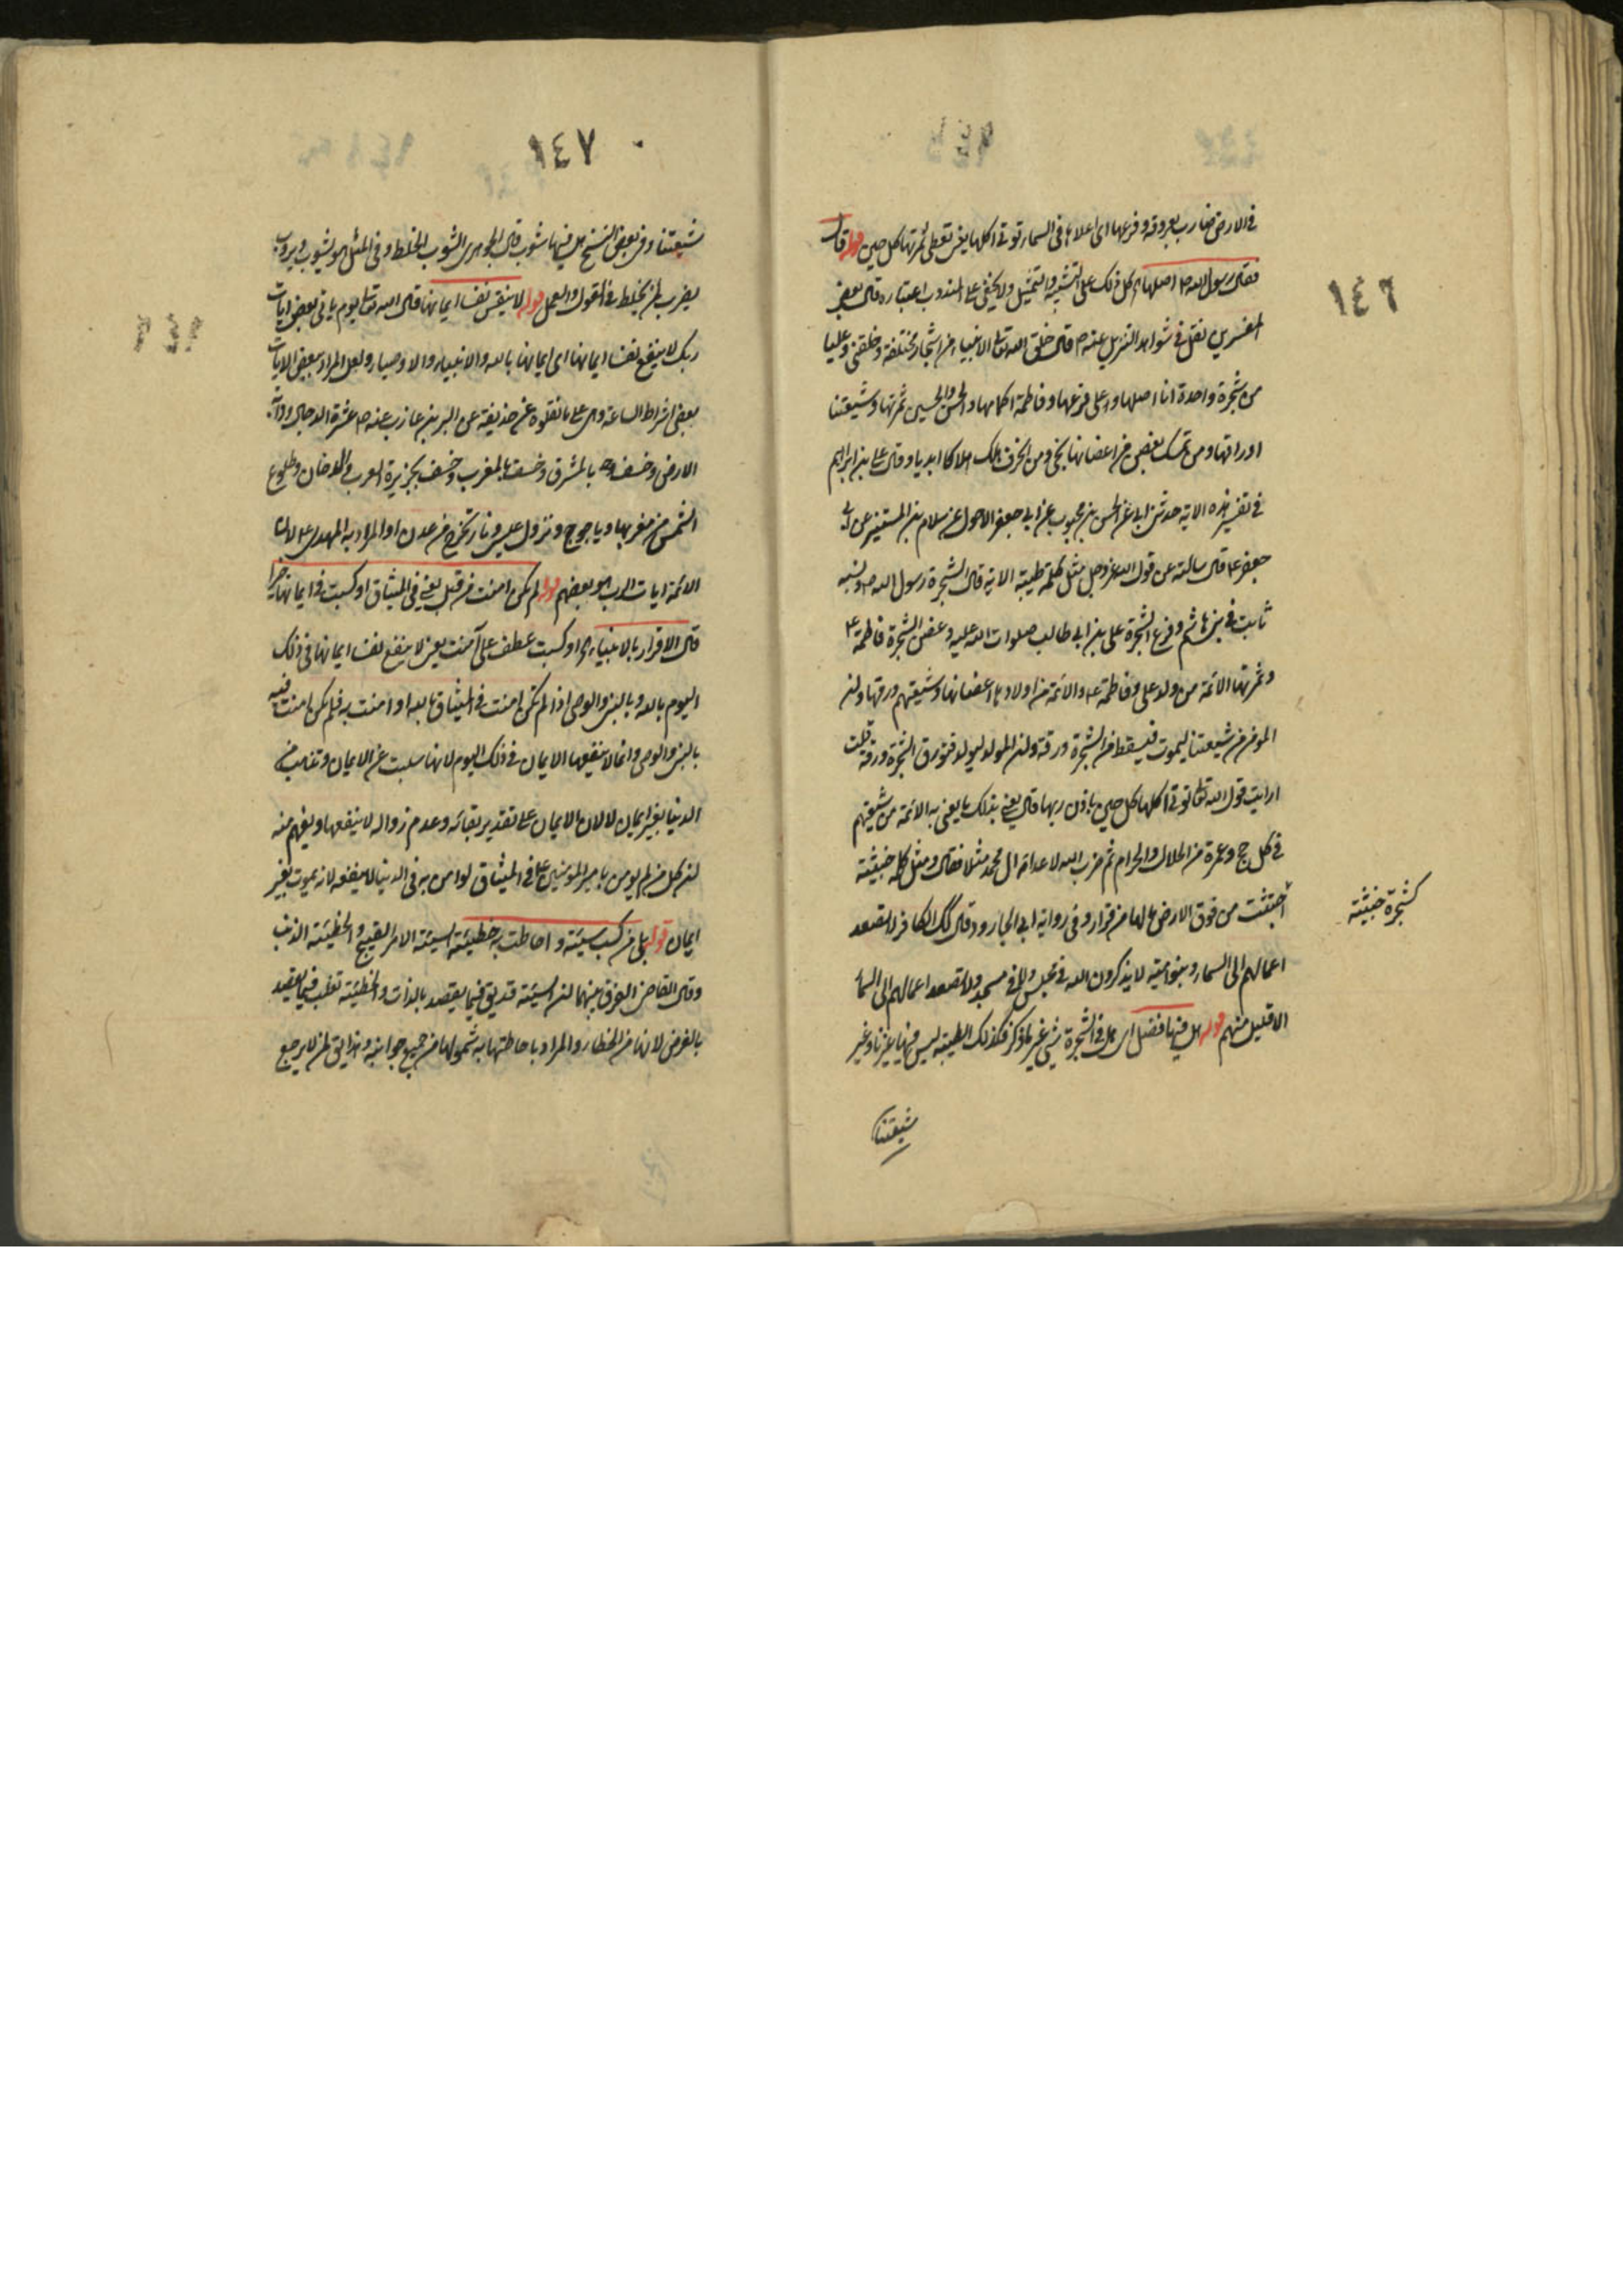 ١٤٦
في الارض ضارب بعروقه وفرعها اى اعلاها في السماء تؤتى اكلها يعنى تعطى ثمرتها كل حين قوله قال
فقال رسول الله ص اصلها اه كل ذلك على التشبيه والتمثيل ولا يخفى على المتدرب اعتباره قال بعض
المفسرين نقل في شواهد التنزيل عنه ص قال خلق الله تعالى الانبياء من اشجار مختلفة وخلقنى وعليا
من شجرة واحدة انا اصلها وعلى فرعها وفاطمة اكمامها والحسن والحسين ثمرتها وشيعتنا
اوراقها ومن تمسك بغصن من اغصانها نجى ومن انحرف هلك هلاكا ابديا وقال على بن ابراهيم
في تفسير هذه الاية حدثنى ابى عن الحسن بن محبوب عن ابى جعفر الاحول عن سلام بن المستنير عن ابى
جعفر ع قال سالته عن قول الله عز وجل مثل كلمة طيبة الاية قال الشجرة رسول الله ص ونسبه
ثابت في بنى هاشم وفرع الشجرة على بن ابى طالب صلوات الله عليه وغصن الشجرة فاطمة ع
وثمرتها الائمة من ولد على وفاطمة ع والائمة من اولادها اغصانها وشيعتهم ورقها وان
المؤمن من شيعتنا ليموت فيسقط من الشجرة ورقة وان المولود ليولد فتورق الشجرة ورقة قلت
ارايت قول الله تعالى تؤتى اكلها كل حين باذن ربها قال يعنى بذلك ما يفتى به الائمة من شيعتهم
في كل حج وعمرة من الحلال والحرام ثم ضرب الله لاعداء ال محمد مثلا فقال ومثل كلمة خبيثة
كشجرة خبيثة
اجتثت من فوق الارض مالها من قرار وفي رواية ابى الجارود قال كذلك الكافر لا تصعد
اعمالهم الى السماء وبنو امية لا يذكرون الله في مجلس ولا في مسجد ولا تصعد اعمالهم الى السماء
الا قليل منهم قوله هل فيها فضل اى هل في الشجرة شئ غير ما ذكر فكذلك الطيبة ليس فيها غيرنا وغير
شيعتنا
١٤٧
شيعتنا وفي بعض النسخ هل فيها شوب قال الجوهرى الشوب الخلط وفي المثل هو يشوب ويروب
يضرب لمن يخلط في القول والعمل قوله لا ينفع نفسا ايمانها قال الله تعالى يوم ياتى بعض ايات
ربك لا ينفع نفسا ايمانها اى ايمانها بالله والانبياء والاوصياء ولعل المراد ببعض الايات
بعض اشراط الساعة وهى على ما نقلوه عن حذيفة عن البراء بن عازب عنه ص عشرة الدجال ودابة
الارض وخسف بالمشرق وخسف بالمغرب وخسف بجزيرة العرب والدخان وطلوع
الشمس من مغربها وياجوج ونزول عيسى ونار تخرج من عدن او المراد به المهدى ع لان
الائمة ايات الرب وهو بعضهم قوله لم تكن امنت من قبل يعنى في الميثاق او كسبت في ايمانها خيرا
قال الاقرار بالانبياء اه او كسبت عطف على آمنت يعنى لا ينفع نفسا ايمانها في ذلك
اليوم بالله وبالنبى والوصى اذا لم تكن امنت في الميثاق بالله او امنت به فلم تكن امنت فيه
بالنبى والوصى وانما لا ينفعها الايمان في ذلك اليوم لانها سلبت عن الايمان وتذهب من
الدنيا بغير ايمان لا لان الايمان على تقدير بقائه وعدم زواله لا ينفعها ويفهم منه
ان كل من لم يومن بامير المومنين ع في الميثاق لو امن به في الدنيا لا ينفعه لانه يموت بغير
ايمان قوله بلى من كسب سيئة واحاطت به خطيئته السيئة الامر القبيح والخطيئة الذنب
وقال القاضى الفرق بينهما ان السيئة قد يق فيما يقصد بالذات والخطيئة تغلب فيما يقصد
بالعرض لانها من الخطاء والمراد باحاطتها به شمولها من جميع جوانبه وهذا يق لمن لا يرجع